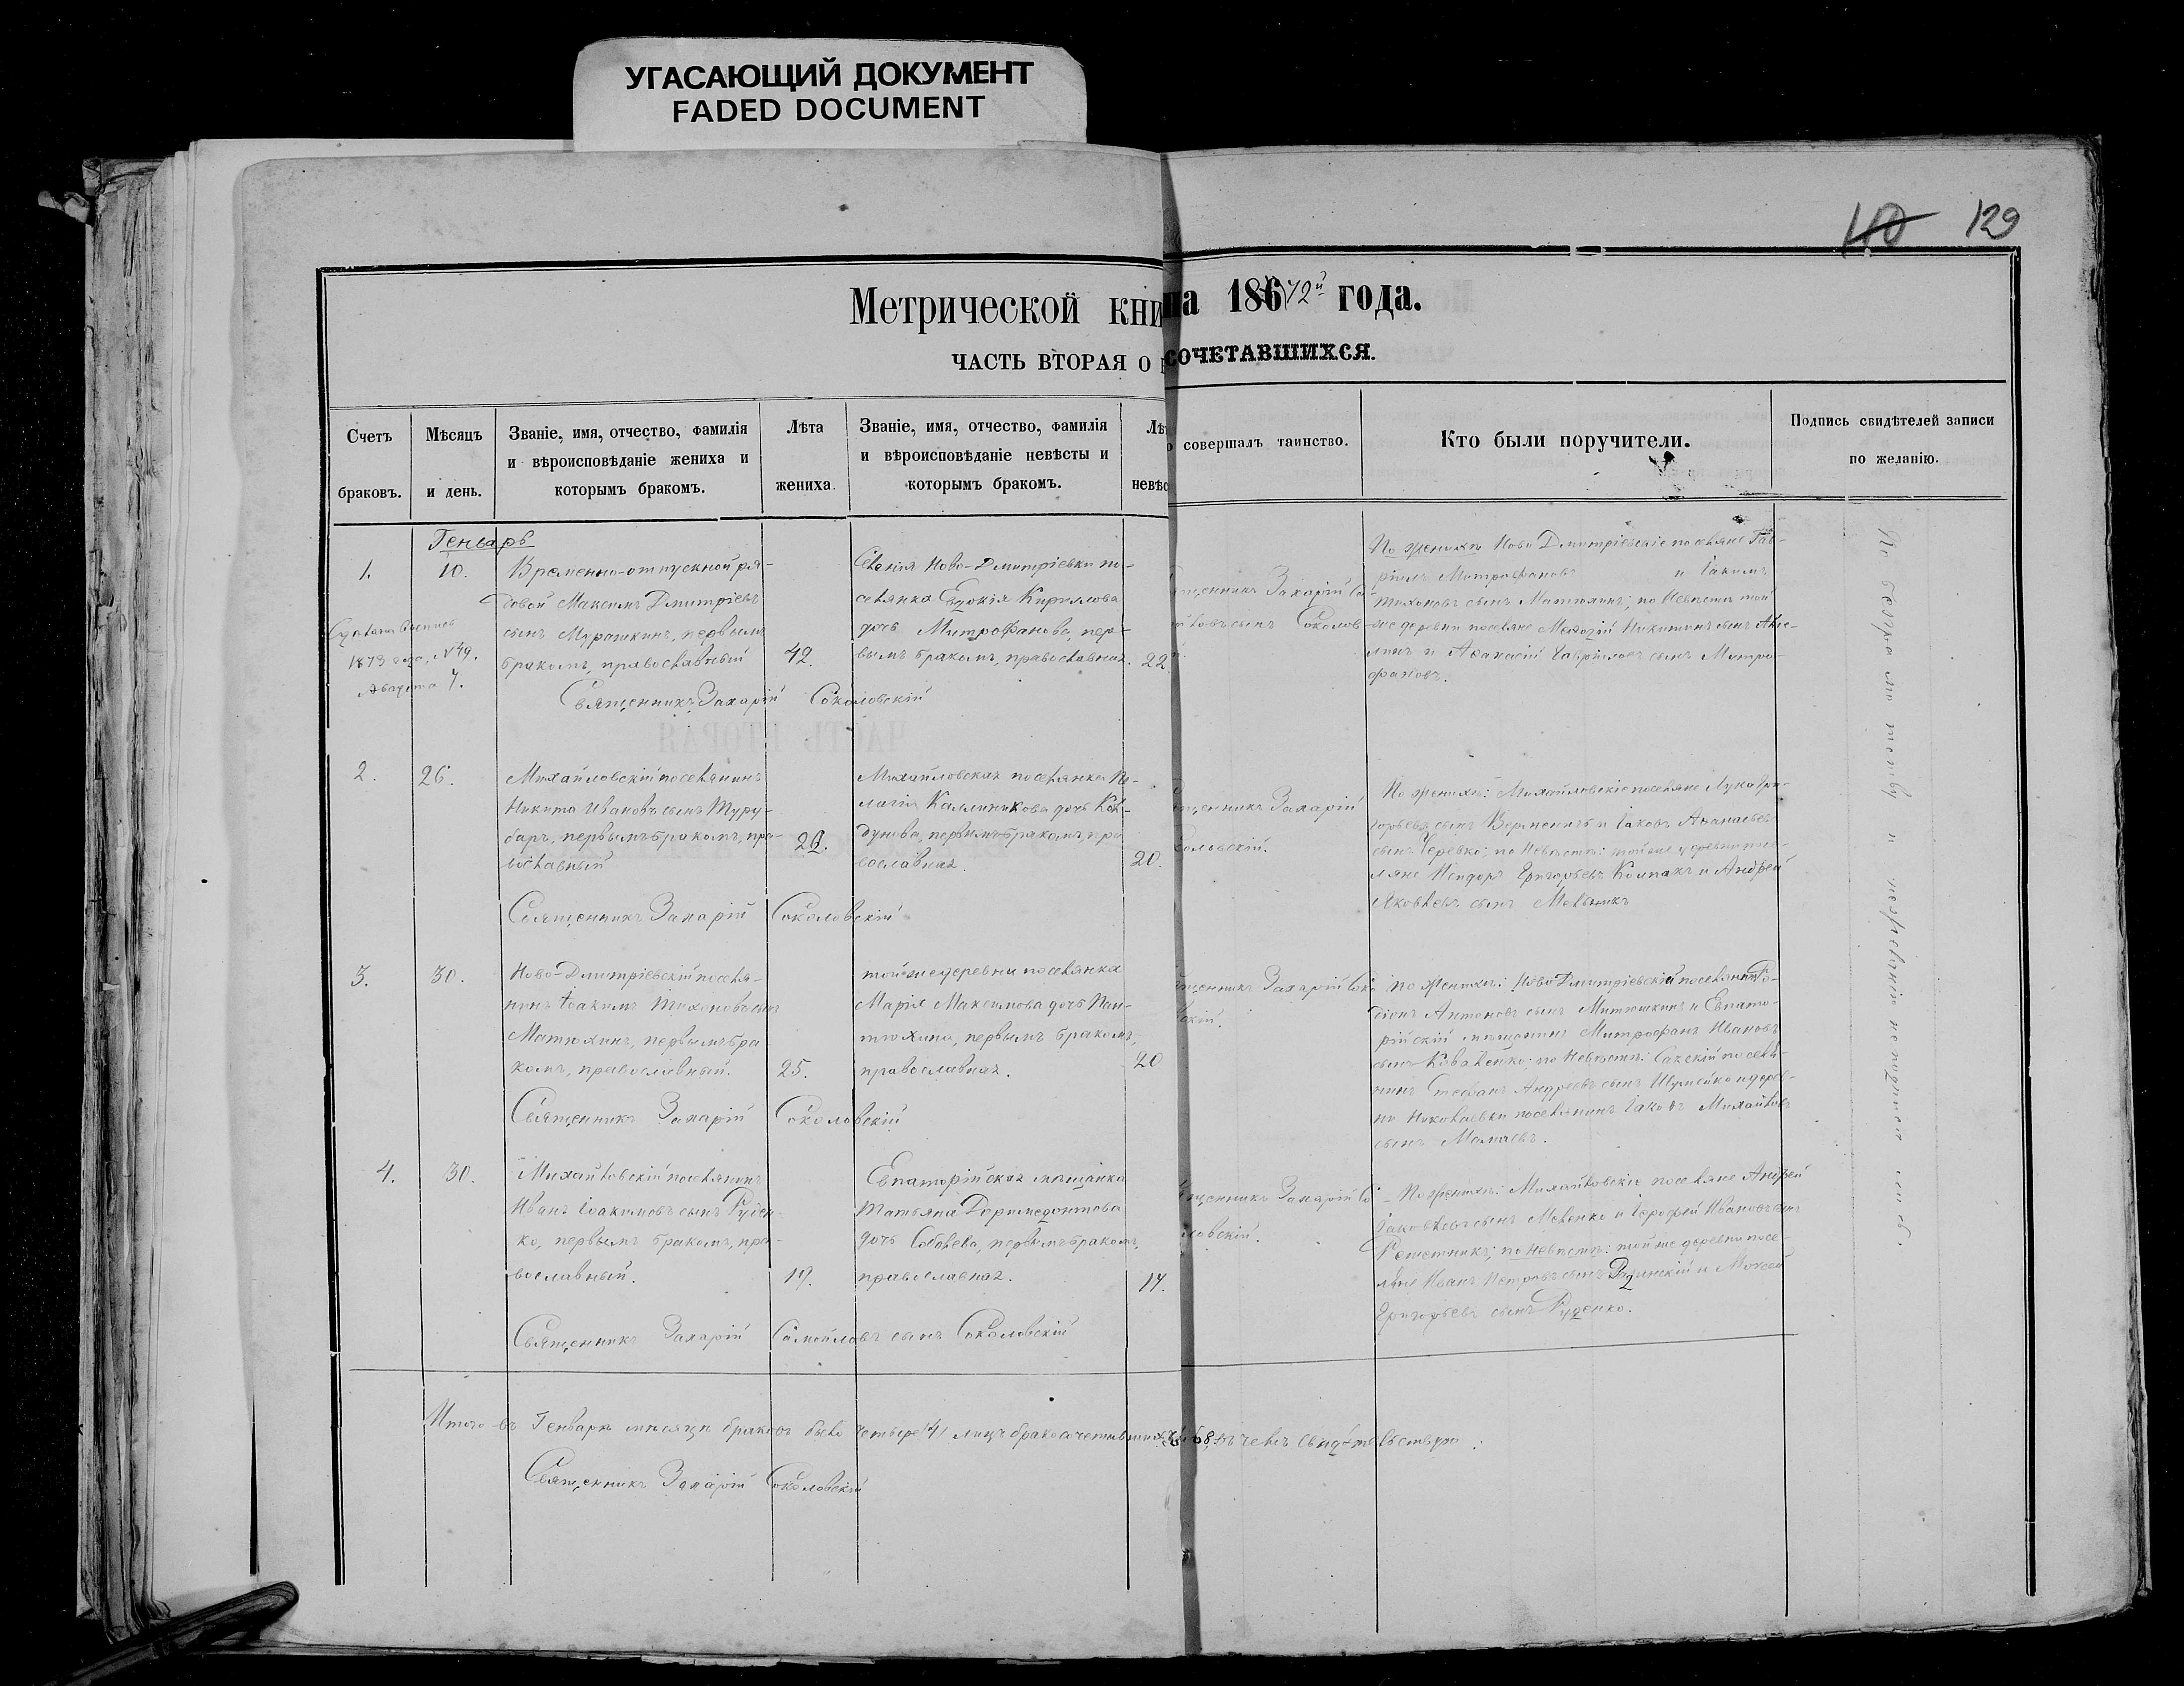 УГАСАЮЩИЙ ДОКУМЕНТ
FADED DOCUMENT
110 129
Метрической кни на 1872й года.
ЧАСТЬ ВТОРАЯ О СОЧЕТАВШИХСЯ.
Счетъ браковъ.
Мѣсяцъ и день.
Званіе, имя, отчество, фамилія
и вѣроисповѣданіе жениха и
которымъ бракомъ.
Лѣта
жениха.
Званіе, имя, отчество, фамилія
и вѣроисповѣданіе невѣсты и
которымъ бракомъ.
Лѣ
невѣс
совершалъ таинство.
Кто были поручители.
Подпись свидѣтелей записи
по желанію.
Генварь
1.
10.
Временно-отпускной ря-
довой Максимъ Дмитріевъ
сынъ Мурашкинъ, первымъ
бракомъ, православный
1873 года, № 49.
Августа 7.
42.
Ново-Дмитріевки по-
селянка Евдокія Кириллова
дочь Митрофанова, пер-
вымъ бракомъ, православная.
22
Священникъ Захарій Соколовскій
щенникъ Захарій
сынъ Соколов-
По женихѣ Ново Дмитріевскіе поселяне Гав-
ріилъ Митрофановъ и Іакимъ
Тихоновъ сынъ Матюхинъ; по Невѣстѣ той
же деревни поселяне Никитинъ сынъ
и Аѳанасій Гавріиловъ сынъ Митро-
фановъ.
2.
26.
Михайловскій поселянинъ
Никита Ивановъ сынъ Туру-
баръ, первымъ бракомъ, пра-
вославный
22.
Михайловская поселянка Пе-
лагія Каллиникова дочь Ков-
дунова, первымъ бракомъ, пра
вославная.
20.
Священникъ Захарій Соколовскій
щенникъ Захарій
кольвскій.
По женихѣ: Михайловскіе поселяне Лука Гри-
горьевъ сынъ и Іаковъ Аѳанасьевъ
сынъ Черевко; по Невѣстѣ: той же деревни посе-
ляне Исидоръ Григорьевъ Колпакъ и Андрей
Яковлевъ сынъ Мельникъ
3.
30.
Ново-Дмитріевскій поселя-
нинъ Іоакимъ Тихоновъ сынъ
Матюхинъ, первымъ бра
комъ, православный.
25.
той же деревни поселянка
Марія Максимова дочь Пан-
тюхина, первымъ бракомъ,
православная.
20
Священникъ Захарій Соколовскій
щенникъ Захарій Соко
скій.
по Женихѣ: Ново Дмитріевскій поселянинъ Ро-
діонъ Антоновъ сынъ Митюшкинъ и Евпато-
рійскій мѣщанинъ Митрофанъ Ивановъ
сынъ Коваленко; по Невѣстѣ: Сакскій поселя-
нинъ Стефанъ Андреевъ сынъ Шулейко и дерев-
ни Николаевки поселянинъ Іаковъ Михайловъ
сынъ Мамаевъ.
4.
30.
Михайловскій поселянинъ
Иванъ Іоакимовъ сынъ Руден-
ко, первымъ бракомъ, пра-
вославный.
19.
Евпаторійская мѣщанка
Татьяна Доримедонтова
дочь Соловьева, первымъ бракомъ,
православная.
17.
Священникъ Захарій Самойловъ сынъ Соколовскій
щенникъ Захарій Со
ловскій.
По женихѣ: Михайловскіе поселяне Андрей
Іаковлевъ сынъ и Іерофей Ивановъ сынъ
Решетникъ; по невѣстѣ: той же деревни посе-
ляне Иванъ Петровъ сынъ и Моисей
Григорьевъ сынъ Руденко.
Итого въ Генварѣ мѣсяцѣ браковъ было четыре /4/ лицъ бракосочетавшихся 8, въ чемъ свидѣтельствую:
Священникъ Захарій Соколовскій